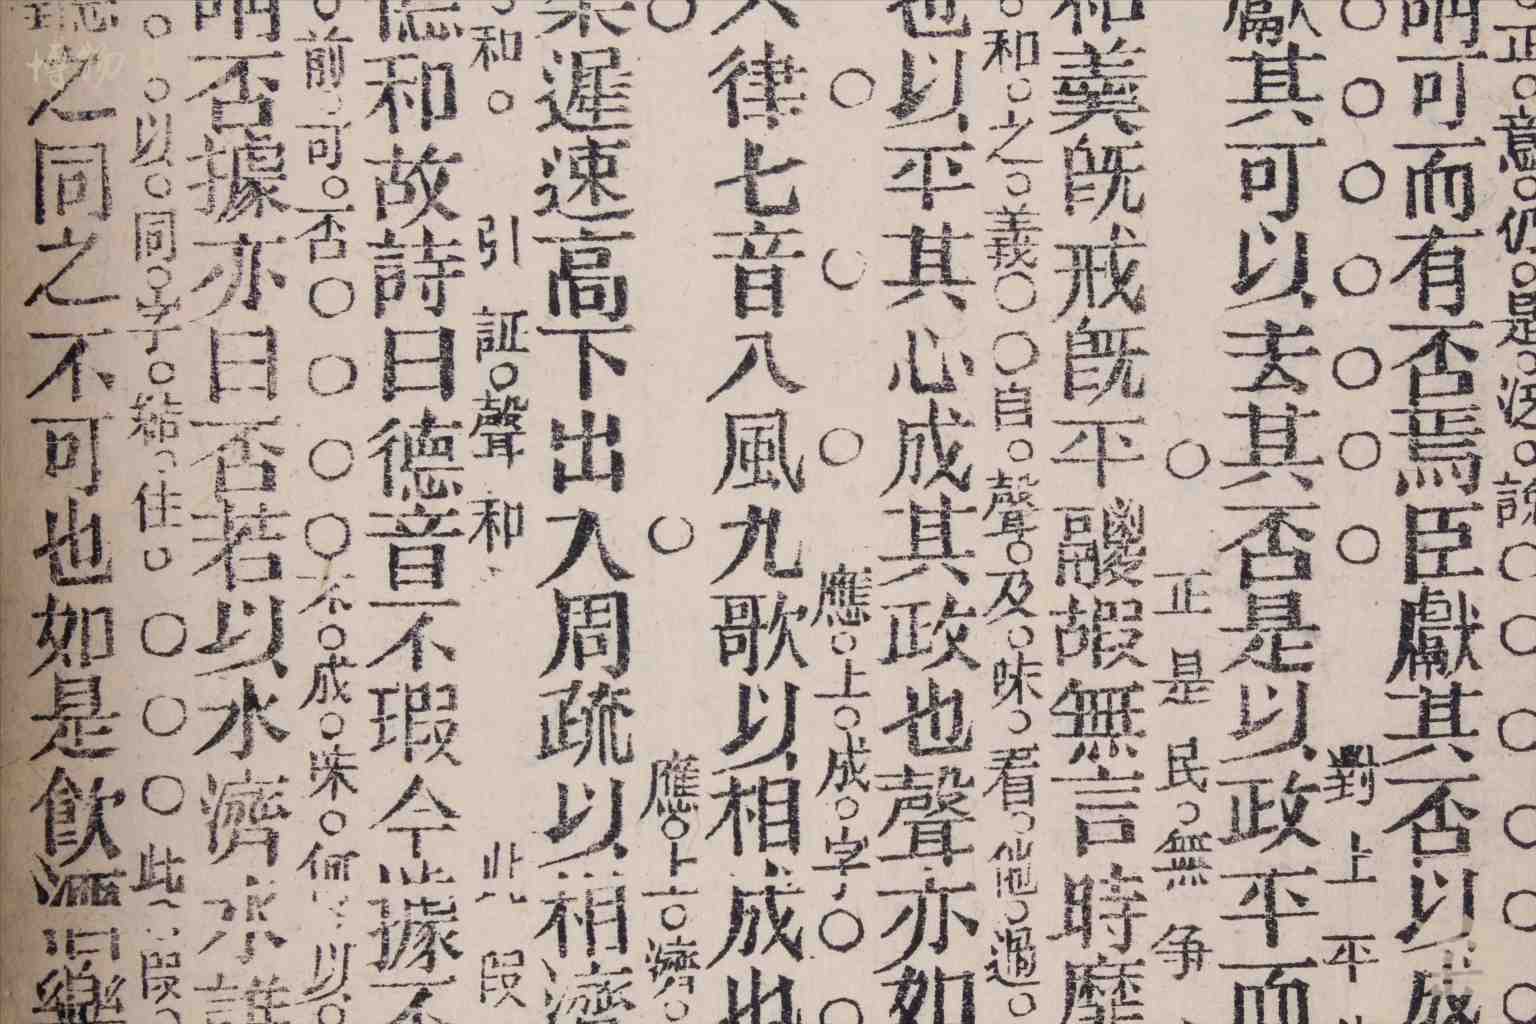 正意仍是泛說
謂可而有否焉臣獻其否以成
對上平
獻其可以去其否是以政平而
正是民無争
和羹既戒既平鬷嘏無言時靡
和之義自聲及味看他過
也以平其心成其政也聲亦如
應上成字
六律七音八風九歌以相成也
應上濟
樂遲速高下出入周疏以相濟
引証聲和此段
德和故詩曰德音不瑕今據不
前可否不成味何以
謂否據亦曰否若以水濟水誰
以同字結住此段
聽之同之不可也如是飲酒樂
博物